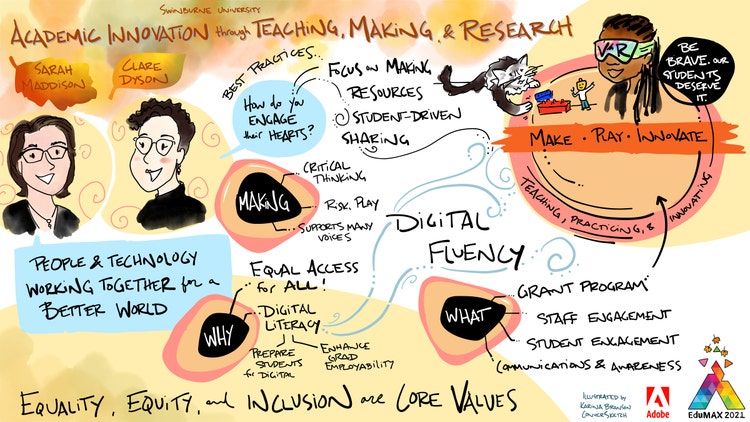 SWINBURNE UNIVERSITY
ACADEMIC INNOVATION through TEACHING, MAKING, & RESEARCH
SARAH
MADDISON
CLARE
DYSON
BEST PRACTICES...
How do you
ENGAGE
their HEARTS?
FOCUS ON MAKING
RESOURCES
STUDENT-DRIVEN
SHARING
V&R
BE
BRAVE. OUR
STUDENTS
DESERVE
IT.
MAKE • PLAY • INNOVATE
TEACHING, PRACTICING, & INNOVATING
MAKING
CRITICAL
THINKING
RISK, PLAY
SUPPORTS MANY
VOICES
DIGITAL
FLUENCY
PEOPLE & TECHNOLOGY
WORKING TOGETHER for a
BETTER WORLD
WHY
EQUAL ACCESS
for ALL!
DIGITAL
LITERACY
PREPARE
STUDENTS
for DIGITAL
ENHANCE
GRAD
EMPLOYABILITY
WHAT
GRANT PROGRAM
STAFF ENGAGEMENT
STUDENT ENGAGEMENT
COMMUNICATIONS & AWARENESS
EQUALITY, EQUITY, and INCLUSION are CORE VALUES
ILLUSTRATED by
KARINA BRANSON
CONVERSKETCH
Adobe
EduMAX 2021